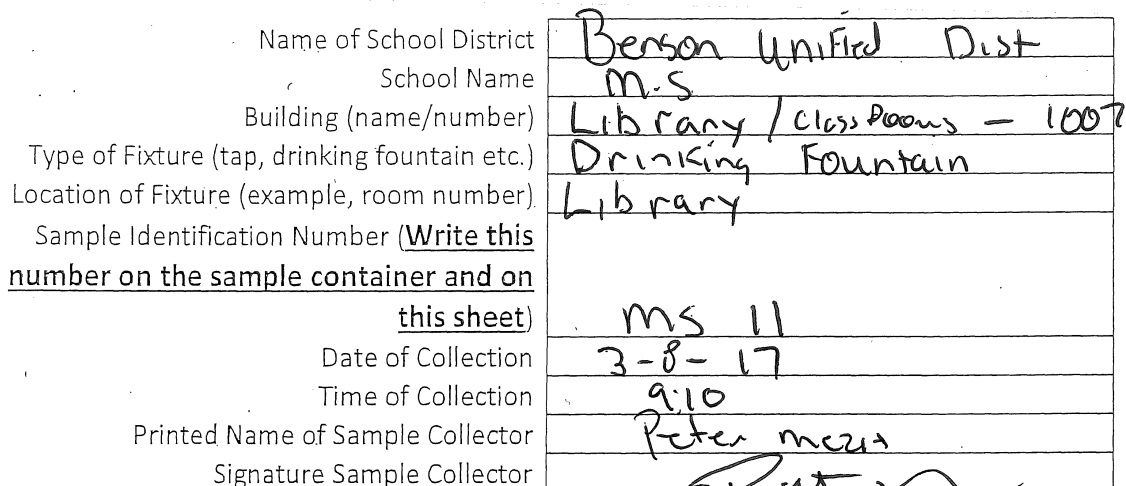 Name of School District Benson Unified Dist
School Name M.S
Building (name/number) Library / Classrooms - 1007
Type of Fixture (tap, drinking fountain etc.) Drinking Fountain
Location of Fixture (example, room number) Library
Sample Identification Number (Write this
number on the sample container and on
this sheet) MS 11
Date of Collection 3-8-17
Time of Collection 9:10
Printed Name of Sample Collector Peter
Signature Sample Collector